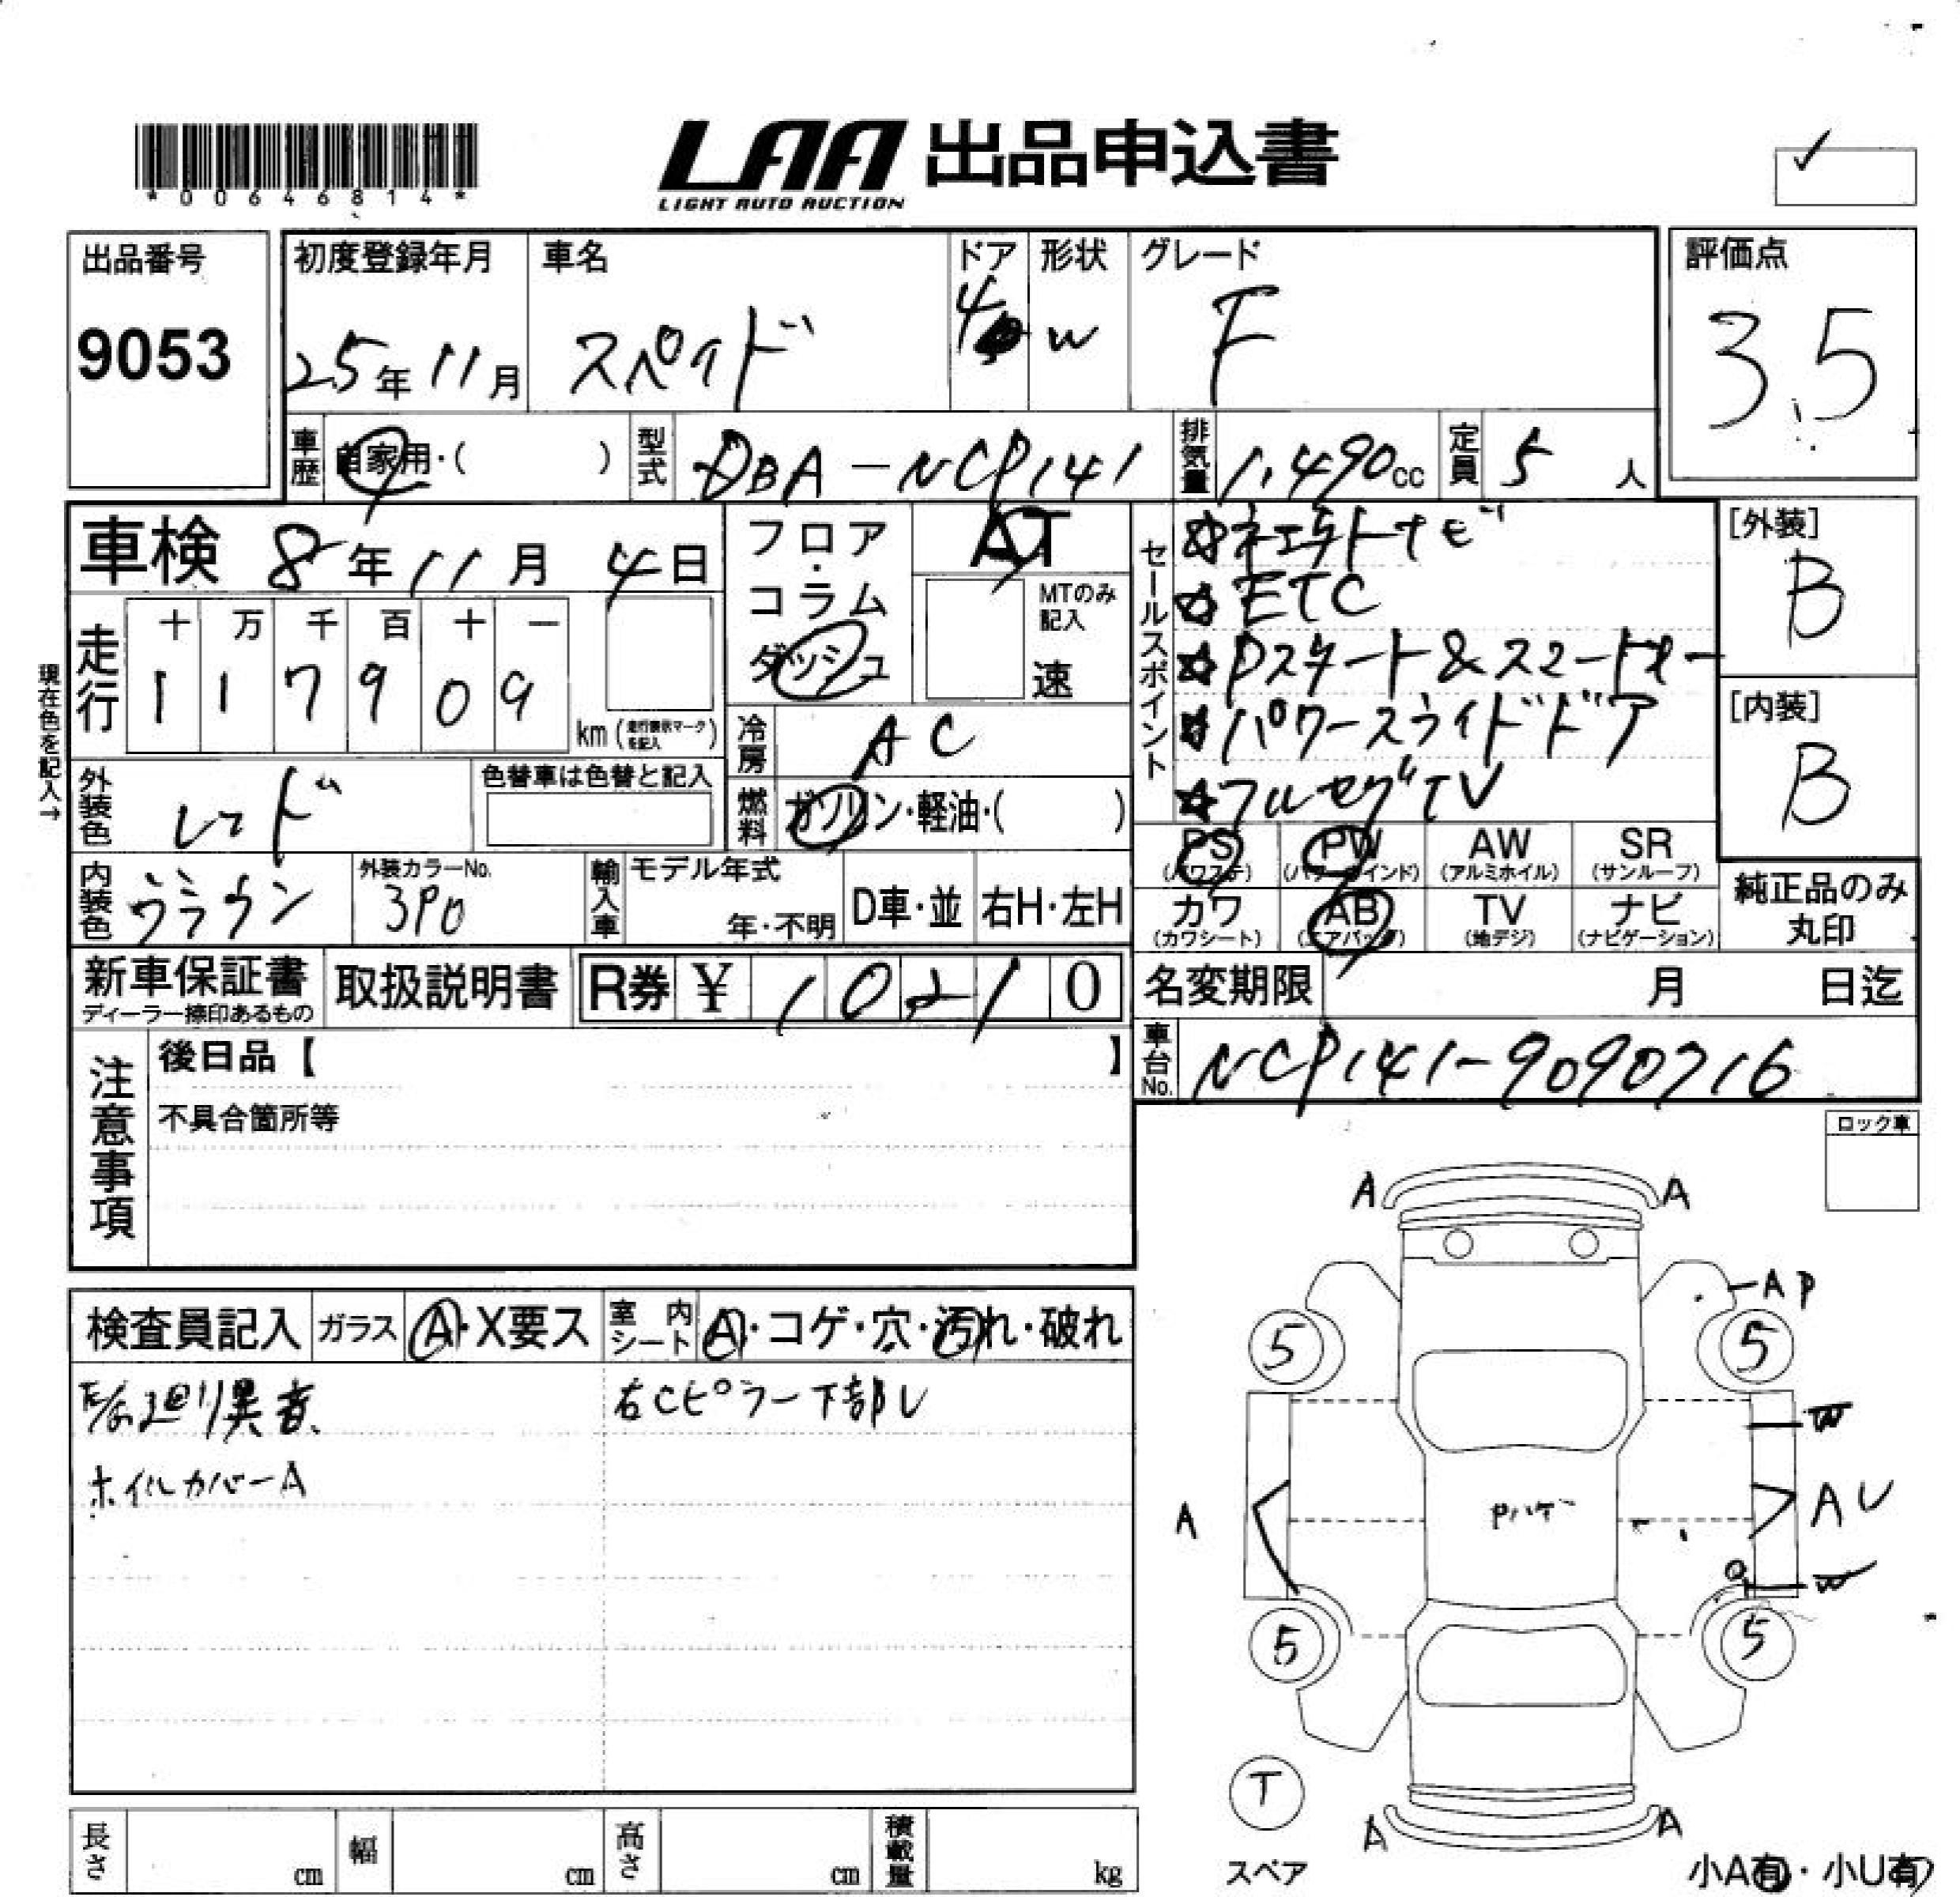 *00646814*
LAA 出品申込書
LIGHT AUTO AUCTION
✓
出品番号
9053
初度登録年月
25年11月
車名
スペイド
ドア
4
形状
W
グレード
F
評価点
3.5
車歴
自家用・( )
型式
DBA-NCP141
排気量
1.490cc
定員
5人
車検 8年11月4日
現在色を記入→
走行
十 万 千 百 十 一
1 1 7 9 0 9
km(走行表示マークを記入)
フロア・コラム
ダッシュ
AT
MTのみ記入
速
冷房
AC
燃料
ガソリン・軽油・( )
セールスポイント
☆ETC
☆Pスタート&スマートキー
☆パワースライドドア
☆フルセグTV
[外装]
B
[内装]
B
外装色
レッド
色替車は色替と記入
内装色
ブラウン
外装カラーNo.
3P0
輸入車
モデル年式
年・不明
D車・並
右H・左H
PS
(パワステ)
PW
(パワーウインド)
AW
(アルミホイル)
SR
(サンルーフ)
カワ
(カワシート)
AB
(エアバッグ)
TV
(地デジ)
ナビ
(ナビゲーション)
純正品のみ
丸印
新車保証書
ディーラー捺印あるもの
取扱説明書
R券 ¥ 10210
名変期限 月 日迄
車台No.
NCP141-9090716
注意事項
後日品【 】
不具合箇所等
ロック車
検査員記入
ガラス
A・X要ス
室内シート
A・コゲ・穴・汚れ・破れ
廻り異音、
右Cピラー下部U
ホイルカバーA
A A
AP
5 5
W
A
Pハゲ
AU
W
5 5
T
スペア
A A
小A有・小U有
長さ cm
幅 cm
高さ cm
積載量 kg